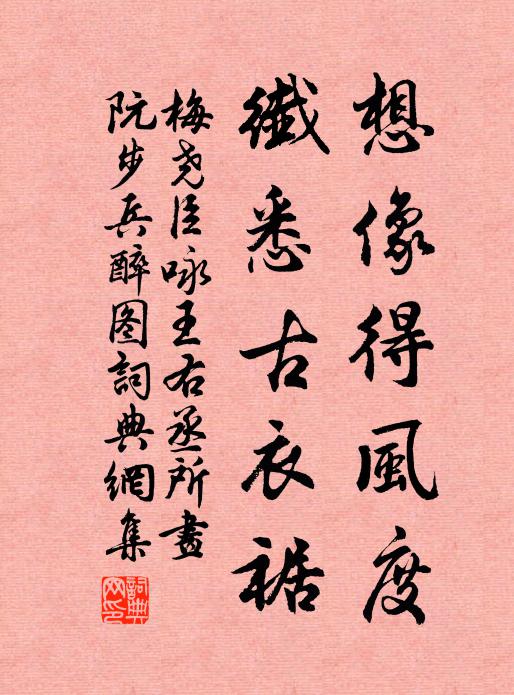 想像得風度
纖悉古衣裾
梅尧臣咏王右丞所畫
阮步兵醉图詞典網集
詞典网印